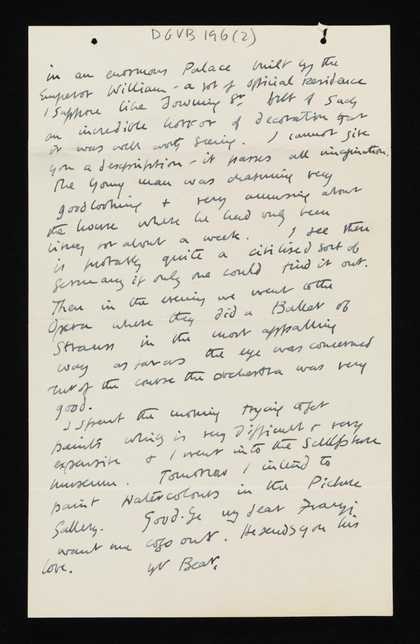 DGVB 196(2)
in an enormous Palace built by the
Emperor William - a sort of official residence
I suppose like Downing St but of such
an incredible horror of decoration that
it was well worth seeing. I cannot give
you a description - it passes all imagination.
The young man was charming very
goodlooking + very amusing about
the house where he had only been
living for about a week. I see there
is probably quite a civilised sort of
Germany if only one could find it out.
Then in the evening we went to the
Opera where they did a Ballet of
Strauss in the most appalling
way as far as the eye was concerned
but of the course the orchestra was very
good.
I spent the morning trying to get
paints which is very difficult + very
expensive + I went into the Sculpture
museum. Tomorrow I intend to
paint Watercolours in the Picture
Gallery. Good-bye my dear
want me to go out. He sends you his
love. yr Bear.